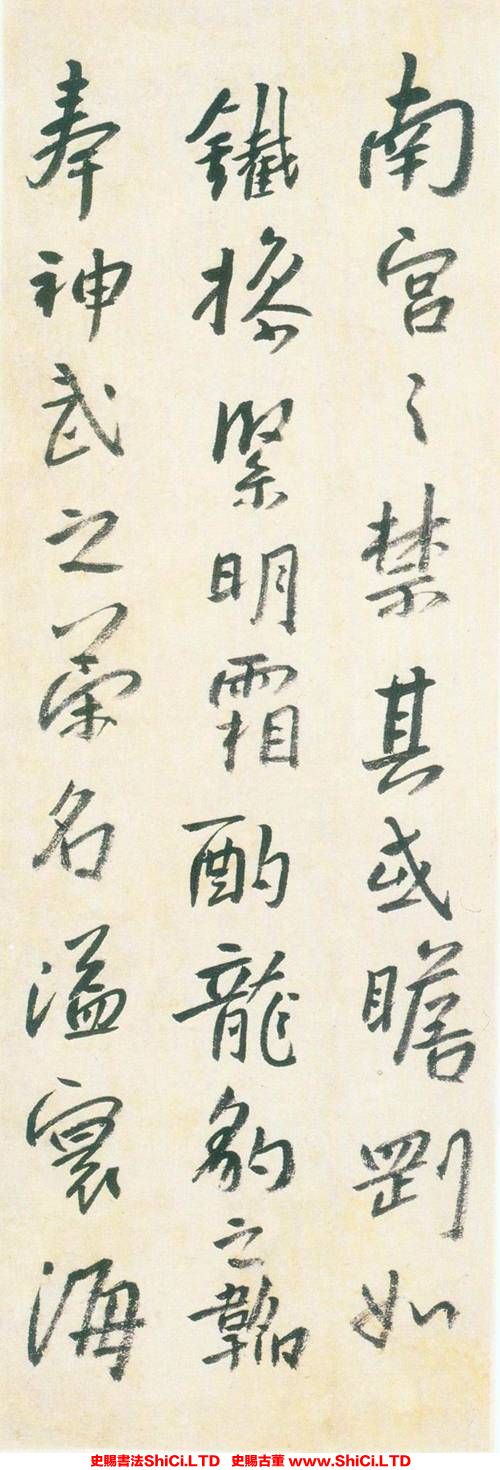 南宮之禁其或瞻剛如
鐵操緊明霜酌龍豹之韜
奉神武之策名溢寰海
史賜書法ShiCi.LTD 史賜古董 www.ShiCi.LTD